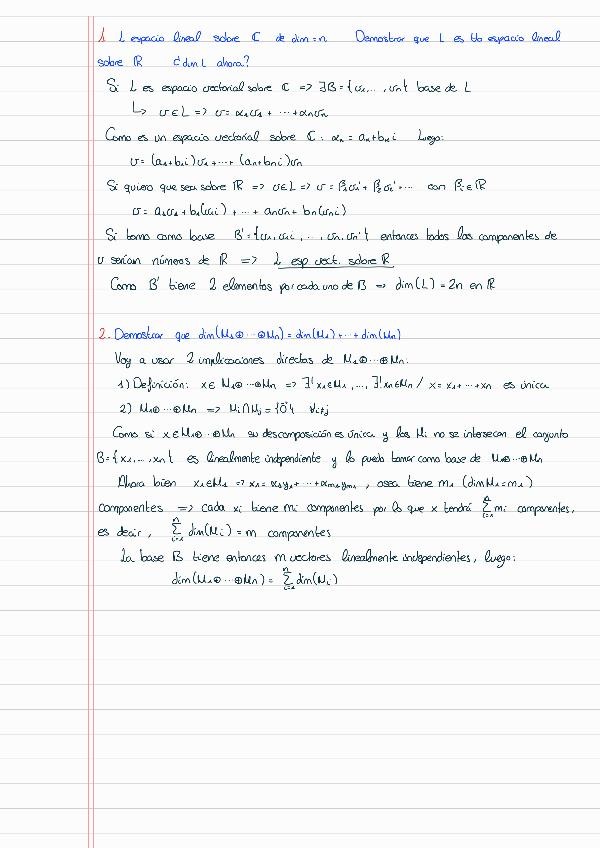 1. L espacio lineal sobre ℂ de dim=n Demostrar que L es tb espacio lineal
sobre ℝ ¿dim L ahora?
Si L es espacio vectorial sobre ℂ => ∃B={v₁,...,vₙ} base de L
↳ v∈L => v=α₁v₁+···+αₙvₙ
Como es un espacio vectorial sobre ℂ: αₙ=aₙ+bₙi Luego:
v=(a₁+b₁i)v₁+···+(aₙ+bₙi)vₙ
Si quiero que sea sobre ℝ => v∈L => v=β₁v₁'+β₂v₂'+··· con βᵢ∈ℝ
v=a₁v₁+b₁(v₁i)+···+aₙvₙ+bₙ(vₙi)
Si tomo como base B'={v₁,v₁i,...,vₙ,vₙi} entonces todos las componentes de
v serían números de ℝ => L esp vect. sobre ℝ
Como B' tiene 2 elementos por cada uno de B => dim(L)=2n en ℝ
2. Demostrar que dim(M₁⊕···⊕Mₙ)=dim(M₁)+···+dim(Mₙ)
Voy a usar 2 implicaciones directas de M₁⊕···⊕Mₙ:
1) Definición: x∈M₁⊕···⊕Mₙ => ∃!x₁∈M₁,...,∃!xₙ∈Mₙ / x=x₁+···+xₙ es única
2) M₁⊕···⊕Mₙ => Mᵢ∩Mⱼ={0⃗} ∀i≠j
Como si x∈M₁⊕···⊕Mₙ su descomposición es única y los Mᵢ no se intersecan el conjunto
B={x₁,...,xₙ} es linealmente independiente y lo puedo tomar como base de M₁⊕···⊕Mₙ
Ahora bien x₁∈M₁ => x₁=α₁y₁+···+αₘ₁yₘ₁, osea tiene m₁ (dimM₁=m₁)
componentes => cada xᵢ tiene mᵢ componentes por lo que x tendrá ∑ⁿᵢ₌₁ mᵢ componentes,
es decir, ∑ⁿᵢ₌₁ dim(Mᵢ)=m componentes
La base B tiene entonces m vectores linealmente independientes, luego:
dim(M₁⊕···⊕Mₙ)=∑ⁿᵢ₌₁ dim(Mᵢ)